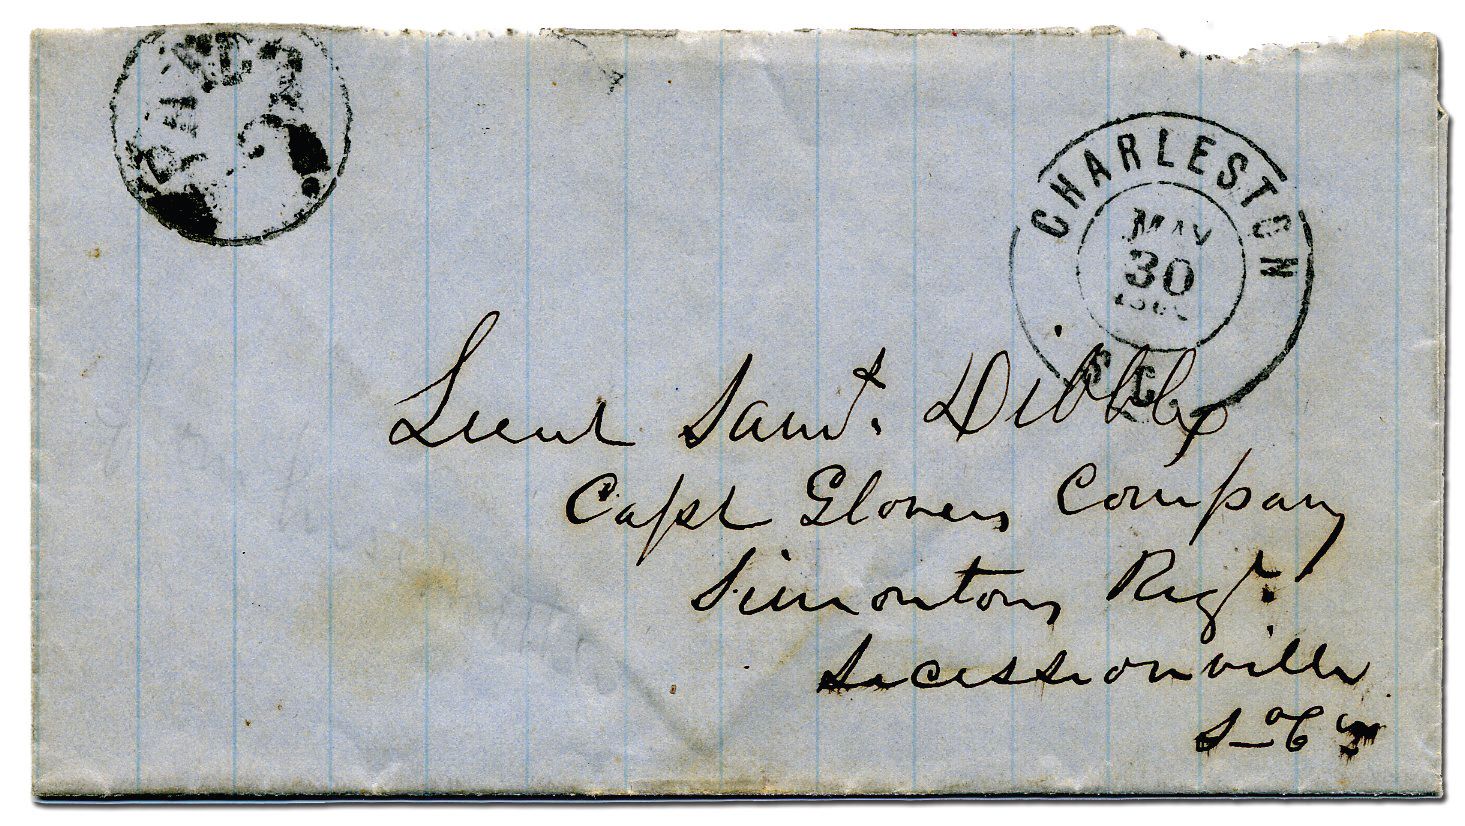 PAID
2
CHARLESTON
MAY
30
S C.
Lieut Saml. Dibble
Capt Glovers Company
Simontons Regt.
Secessionville
So Ca